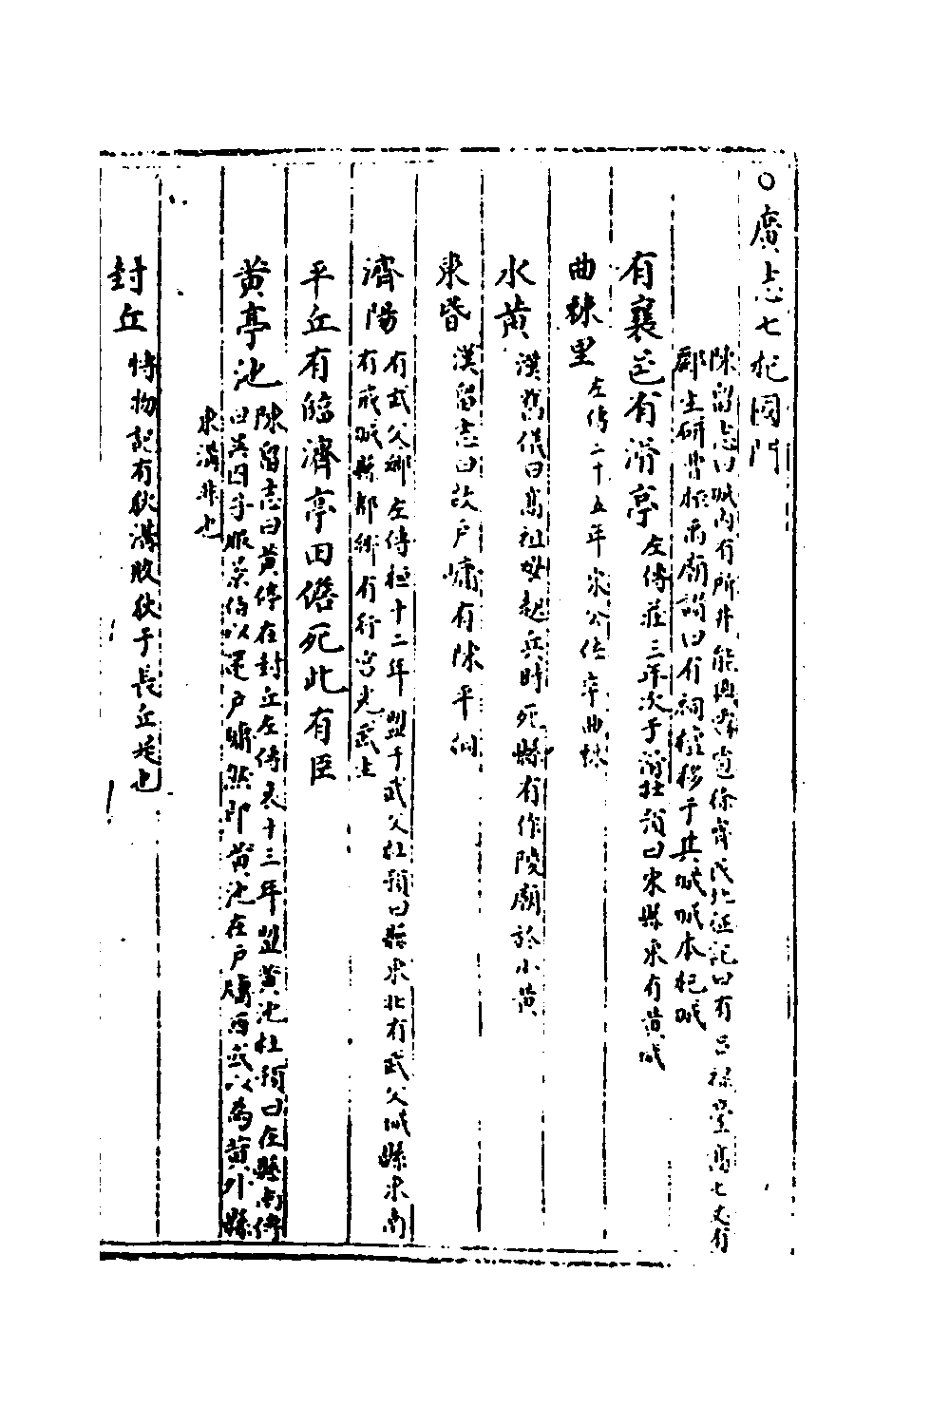 ○廣志七杞國門
陳留志曰城內有所井能興霧氣徐齊民北征記曰有呂祿臺高七丈有
郡生研書柩禹廟謂曰有祠權移于其城城本杞城
有襄邑有滑亭
左傳莊三年次于滑杜預曰宋縣東有黄城
曲棘里
左傳二十五年宋公佐卒曲棘
水黄
漢舊儀曰高祖母起兵時死縣有作陵廟於小黄
東昏
漢留志曰故户牖有陳平祠
濟陽
有武父鄉左傳桓十二年盟于武父杜預曰縣東北有武父城縣東南
有戎城縣都鄉有行宮光武生
平丘有臨濟亭田儋死此有臣
黄亭池
陳留志曰黄停在封丘左傳哀十三年盟黄池杜預曰在縣南傳
曰吳囚子服景伯以還户牖然即黄池在户牖西或以為黄外縣
東溝非也
封丘
博物記有狄溝敗狄于長丘是也